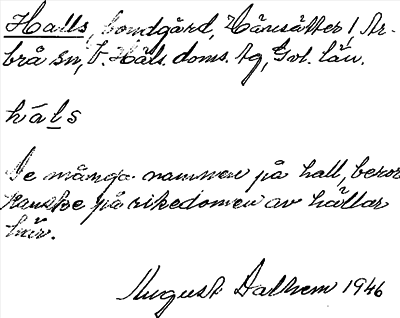 Halls, bondgård, Känsätter, Ar-
brå sn, V. Häls. doms. tg, Gvl. län.
hals
De många namnen på hall, beror
kanske på rikedomen av hällar
här.
August Dalhem 1946